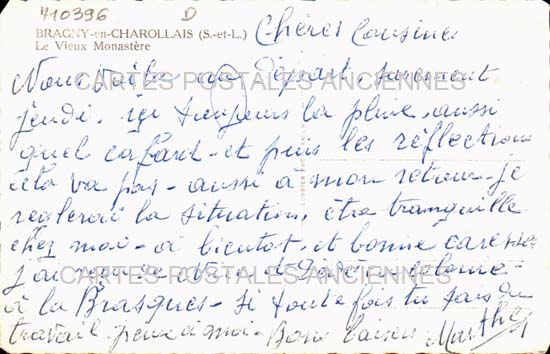 410396 D
BRAGNY-en-CHAROLLAIS (S.-et-L.)
Le Vieux Monastère
Chères Cousines
Nous voila au départ surement
jeudi. ici toujours la pluie, aussi
quel cafard - et puis les réflections
cela va pas - aussi a mon retour - je
reglerai la situation, être tranquille
chez moi - a bientot, et bonne caresse
j'ai
à la Brasques - si toute fois tu sais du
travail pense a moi - Bons baisers Marthe
CARTES POSTALES ANCIENNES
CARTES POSTALES ANCIENNES